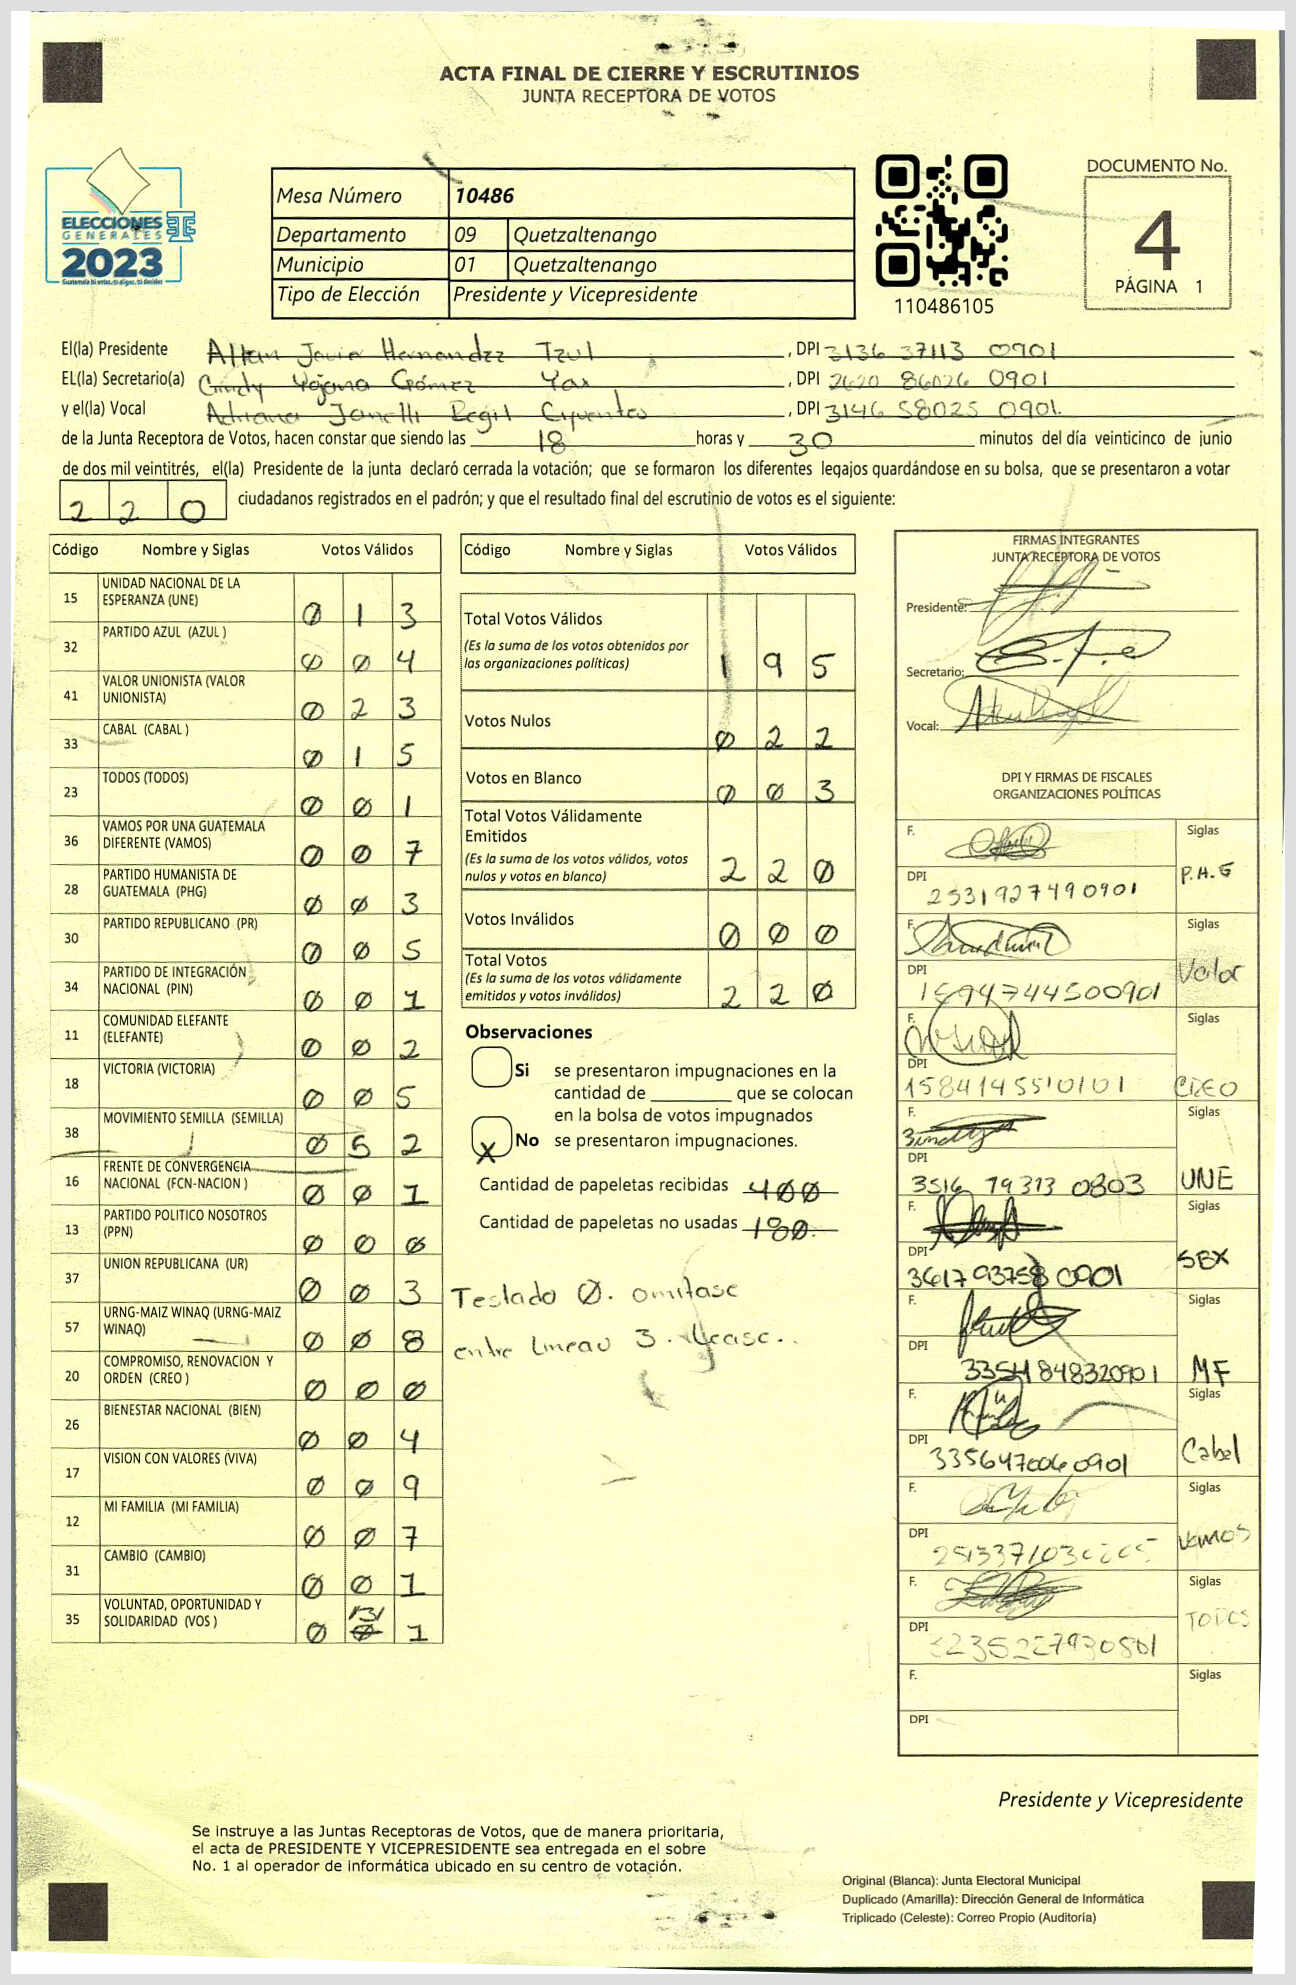 ACTA FINAL DE CIERRE Y ESCRUTINIOS
JUNTA RECEPTORA DE VOTOS
ELECCIONES
GENERALES
2023
Mesa Número 10486
Departamento 09 Quetzaltenango
Municipio 01 Quetzaltenango
Tipo de Elección Presidente y Vicepresidente
110486105
DOCUMENTO No.
4
PÁGINA 1
El(la) Presidente Javier Hernandez Tzul, DPI 3136 37113 0901
EL(la) Secretario(a) Cindy Yojana Gómez Yax, DPI 2620 86026 0901
y el(la) Vocal Adriana Regil Cifuentes, DPI 3146 58025 0901.
de la Junta Receptora de Votos, hacen constar que siendo las 18 horas y 30 minutos del día veinticinco de junio
de dos mil veintitrés, el(la) Presidente de la junta declaró cerrada la votación; que se formaron los diferentes legajos quardándose en su bolsa, que se presentaron a votar
220 ciudadanos registrados en el padrón; y que el resultado final del escrutinio de votos es el siguiente:
Código Nombre y Siglas Votos Válidos
15 UNIDAD NACIONAL DE LA ESPERANZA (UNE) 0 1 3
32 PARTIDO AZUL (AZUL ) 0 0 4
41 VALOR UNIONISTA (VALOR UNIONISTA) 0 2 3
33 CABAL (CABAL ) 0 1 5
23 TODOS (TODOS) 0 0 1
36 VAMOS POR UNA GUATEMALA DIFERENTE (VAMOS) 0 0 7
28 PARTIDO HUMANISTA DE GUATEMALA (PHG) 0 0 3
30 PARTIDO REPUBLICANO (PR) 0 0 5
34 PARTIDO DE INTEGRACIÓN NACIONAL (PIN) 0 0 1
11 COMUNIDAD ELEFANTE (ELEFANTE) 0 0 2
18 VICTORIA (VICTORIA) 0 0 5
38 MOVIMIENTO SEMILLA (SEMILLA) 0 5 2
16 FRENTE DE CONVERGENCIA NACIONAL (FCN-NACION ) 0 0 1
13 PARTIDO POLITICO NOSOTROS (PPN) 0 0 0
37 UNION REPUBLICANA (UR) 0 0 3
57 URNG-MAIZ WINAQ (URNG-MAIZ WINAQ) 0 0 8
20 COMPROMISO, RENOVACION Y ORDEN (CREO ) 0 0 0
26 BIENESTAR NACIONAL (BIEN) 0 0 4
17 VISION CON VALORES (VIVA) 0 0 9
12 MI FAMILIA (MI FAMILIA) 0 0 7
31 CAMBIO (CAMBIO) 0 0 1
35 VOLUNTAD, OPORTUNIDAD Y SOLIDARIDAD (VOS ) 0 /3/ 0 1
Código Nombre y Siglas Votos Válidos
Total Votos Válidos
(Es la suma de los votos obtenidos por las organizaciones políticas) 1 9 5
Votos Nulos 0 2 2
Votos en Blanco 0 0 3
Total Votos Válidamente Emitidos
(Es la suma de los votos válidos, votos nulos y votos en blanco) 2 2 0
Votos Inválidos 0 0 0
Total Votos
(Es la suma de los votos válidamente emitidos y votos inválidos) 2 2 0
Observaciones
Si se presentaron impugnaciones en la
cantidad de ________ que se colocan
en la bolsa de votos impugnados
X No se presentaron impugnaciones.
Cantidad de papeletas recibidas 400
Cantidad de papeletas no usadas 180.
Testado 0. omitase
entre lineas 3. Léase.
FIRMAS INTEGRANTES
JUNTA RECEPTORA DE VOTOS
Presidente:
Secretario:
Vocal:
DPI Y FIRMAS DE FISCALES
ORGANIZACIONES POLÍTICAS
F. Siglas
DPI 2531927490901 P.H.G
F. Siglas
DPI 1594744500901 Valor
F. Siglas
DPI 1584145510101 CREO
F. Siglas
DPI 3516 79373 0803 UNE
F.
DPI 3617937580901
F. Siglas
DPI 3354848320901 MF
F. Siglas
DPI 3356470060901 Cabal
F. Siglas
DPI VAMOS
F. Siglas
DPI 3235227930801 TODOS
F. Siglas
DPI
Presidente y Vicepresidente
Se instruye a las Juntas Receptoras de Votos, que de manera prioritaria,
el acta de PRESIDENTE Y VICEPRESIDENTE sea entregada en el sobre
No. 1 al operador de informática ubicado en su centro de votación.
Original (Blanca): Junta Electoral Municipal
Duplicado (Amarilla): Dirección General de Informática
Triplicado (Celeste): Correo Propio (Auditoría)